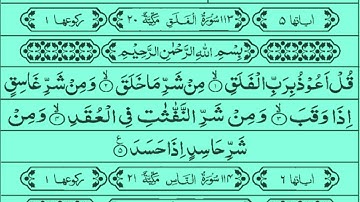 اٰیاتها ۵ ۱۱۳ سُوْرَةُ الْفَلَقِ مَكِّيَّةٌ ۲۰ رکوعها ۱
بِسْمِ اللّٰهِ الرَّحْمٰنِ الرَّحِيْمِ
قُلْ اَعُوْذُ بِرَبِّ الْفَلَقِ ۙ۱ مِنْ شَرِّ مَا خَلَقَ ۙ۲ وَمِنْ شَرِّ غَاسِقٍ
اِذَا وَقَبَ ۙ۳ وَمِنْ شَرِّ النَّفّٰثٰتِ فِي الْعُقَدِ ۙ۴ وَمِنْ
شَرِّ حَاسِدٍ اِذَا حَسَدَ ۵ ع
اٰیاتها ۶ ۱۱۴ سُوْرَةُ النَّاسِ مَكِّيَّةٌ ۲۱ رکوعها ۱